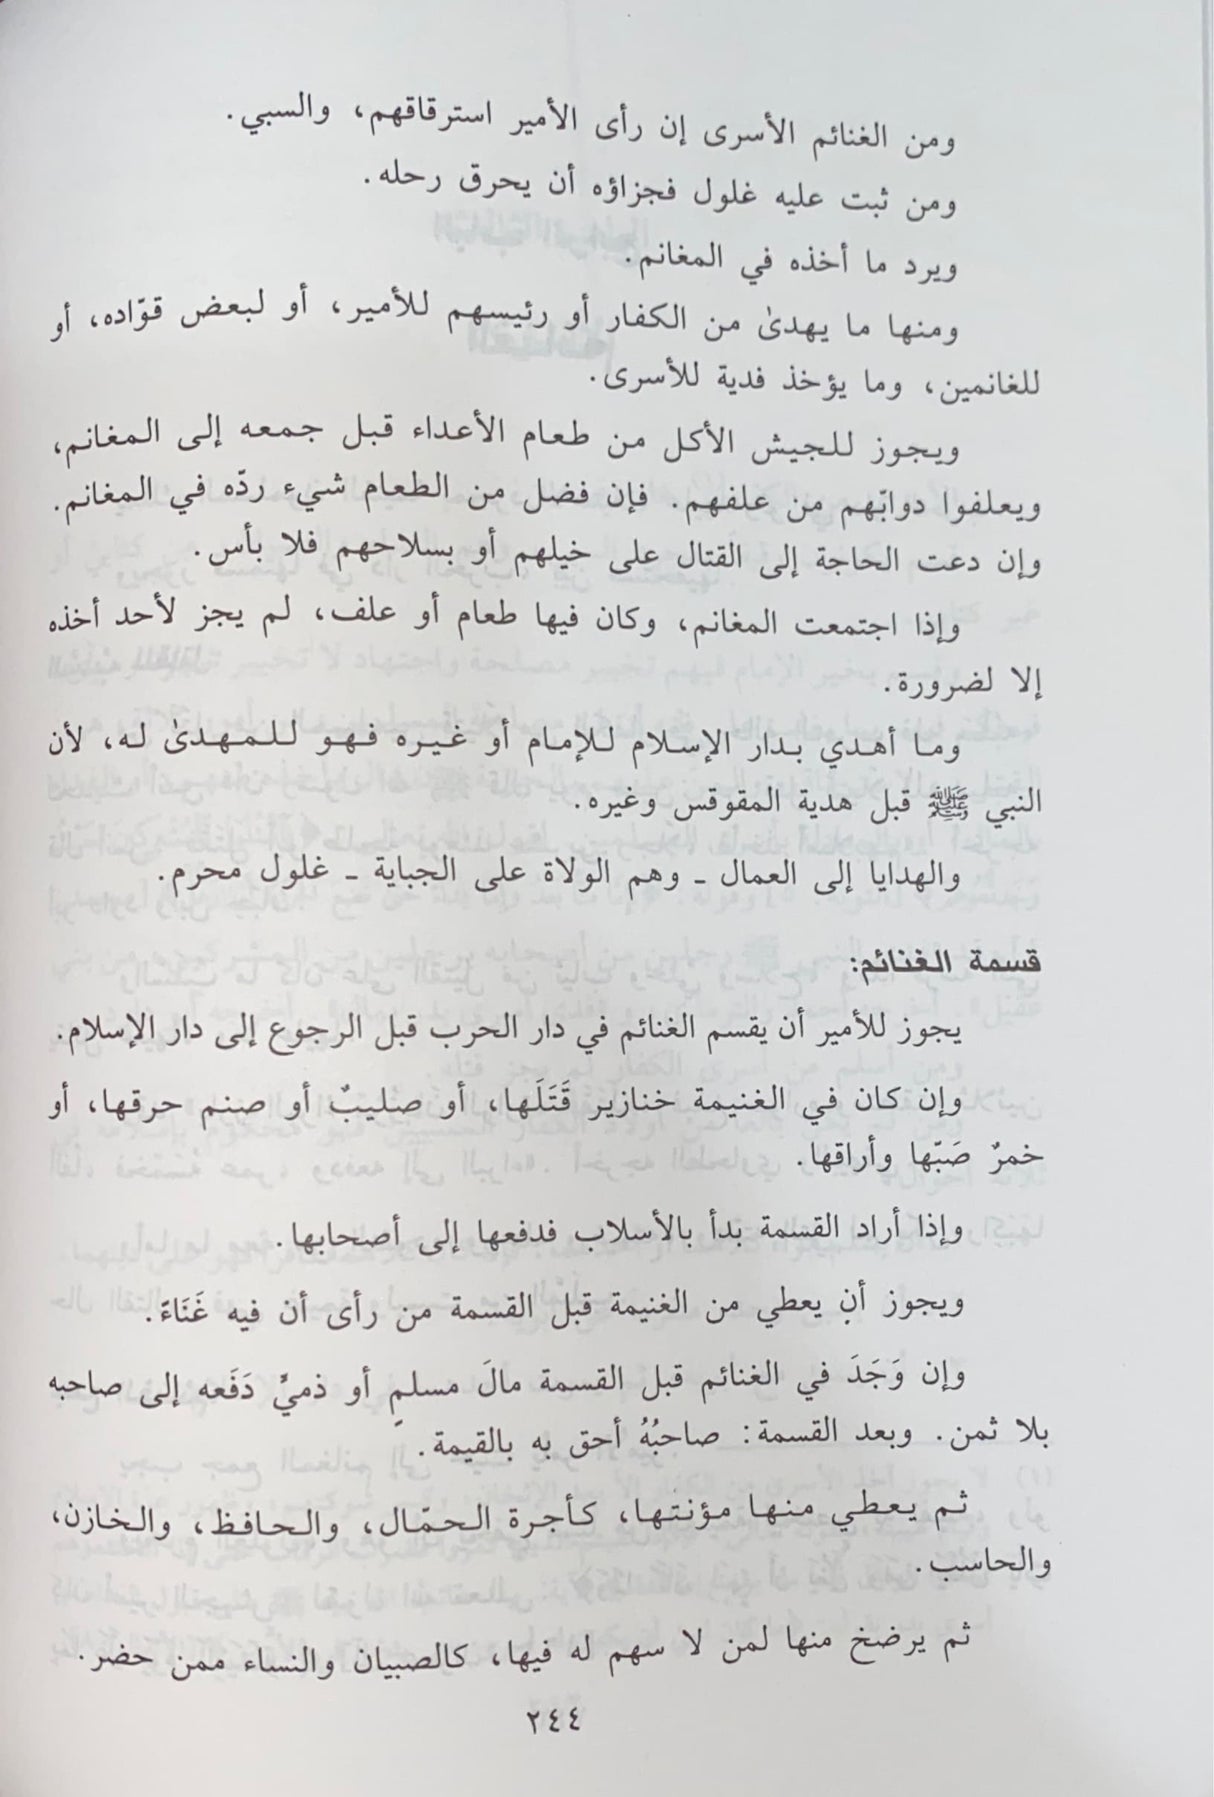 ومن الغنائم الأسرى إن رأى الأمير استرقاقهم، والسبي.
ومن ثبت عليه غلول فجزاؤه أن يحرق رحله.
ويرد ما أخذه في المغانم.
ومنها ما يهدىٰ من الكفار أو رئيسهم للأمير، أو لبعض قوّاده، أو
للغانمين، وما يؤخذ فدية للأسرى.
ويجوز للجيش الأكل من طعام الأعداء قبل جمعه إلى المغانم،
ويعلفوا دوابّهم من علفهم. فإن فضل من الطعام شيء ردّه في المغانم.
وإن دعت الحاجة إلى القتال على خيلهم أو بسلاحهم فلا بأس.
وإذا اجتمعت المغانم، وكان فيها طعام أو علف، لم يجز لأحد أخذه
إلا لضرورة.
وما أهدي بدار الإسلام للإمام أو غيره فهو للمهدىٰ له، لأن
النبي ﷺ قبل هدية المقوقس وغيره.
والهدايا إلى العمال ـ وهم الولاة على الجباية ـ غلول محرم.
قسمة الغنائم:
يجوز للأمير أن يقسم الغنائم في دار الحرب قبل الرجوع إلى دار الإسلام.
وإن كان في الغنيمة خنازير قَتَلَها، أو صليبٌ أو صنم حرقها، أو
خمرٌ صَبّها وأراقها.
وإذا أراد القسمة بدأ بالأسلاب فدفعها إلى أصحابها.
ويجوز أن يعطي من الغنيمة قبل القسمة من رأى أن فيه غَنَاءً.
وإن وَجَدَ في الغنائم قبل القسمة مالَ مسلمٍ أو ذميٍّ دَفَعه إلى صاحبه
بلا ثمن. وبعد القسمة: صاحبُهُ أحق به بالقيمة.
ثم يعطي منها مؤنتها، كأجرة الحمّال، والحافظ، والخازن،
والحاسب.
ثم يرضخ منها لمن لا سهم له فيها، كالصبيان والنساء ممن حضر.
٢٤٤